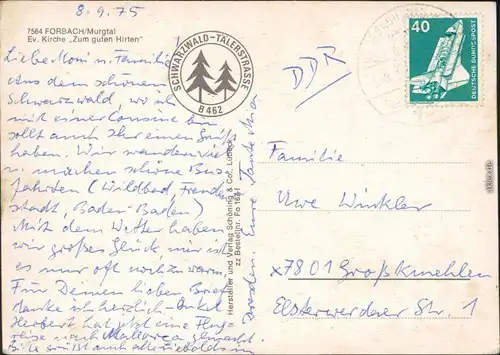 8.9.75
7564 FORBACH/Murgtal
Ev. Kirche „Zum guten Hirten"
Liebe Moni u. Familie
Aus dem schönen
Schwarzwald, wo ich
mit einer Cousine bin
sollt auch Ihr einen Gruß
haben. Wir wandern viel
u. machen schöne Bus-
fahrten (Wildbad, Freuden-
stadt, Baden-Baden)
Mit dem Wetter haben
wir großes Glück, mir ist
es nur oft noch zu warm.
Für Deinen lieben Brief
danke ich herzlich. Onkel
Herbert hat jetzt eine Flug-
reise nach Mallorca gemacht.
Bitte grüßt auch alle
in
Dresden. Eure Tante
SCHWARZWALD-TÄLERSTRASSE
B 462
Hersteller und Verlag Schöning & Co, Lübeck
zz Bestellnr. Fo 1684
DDR
40
DEUTSCHE BUNDESPOST
Familie
Uwe Winkler
x7801 Großkmehlen
Elsterwerdaer Str. 1